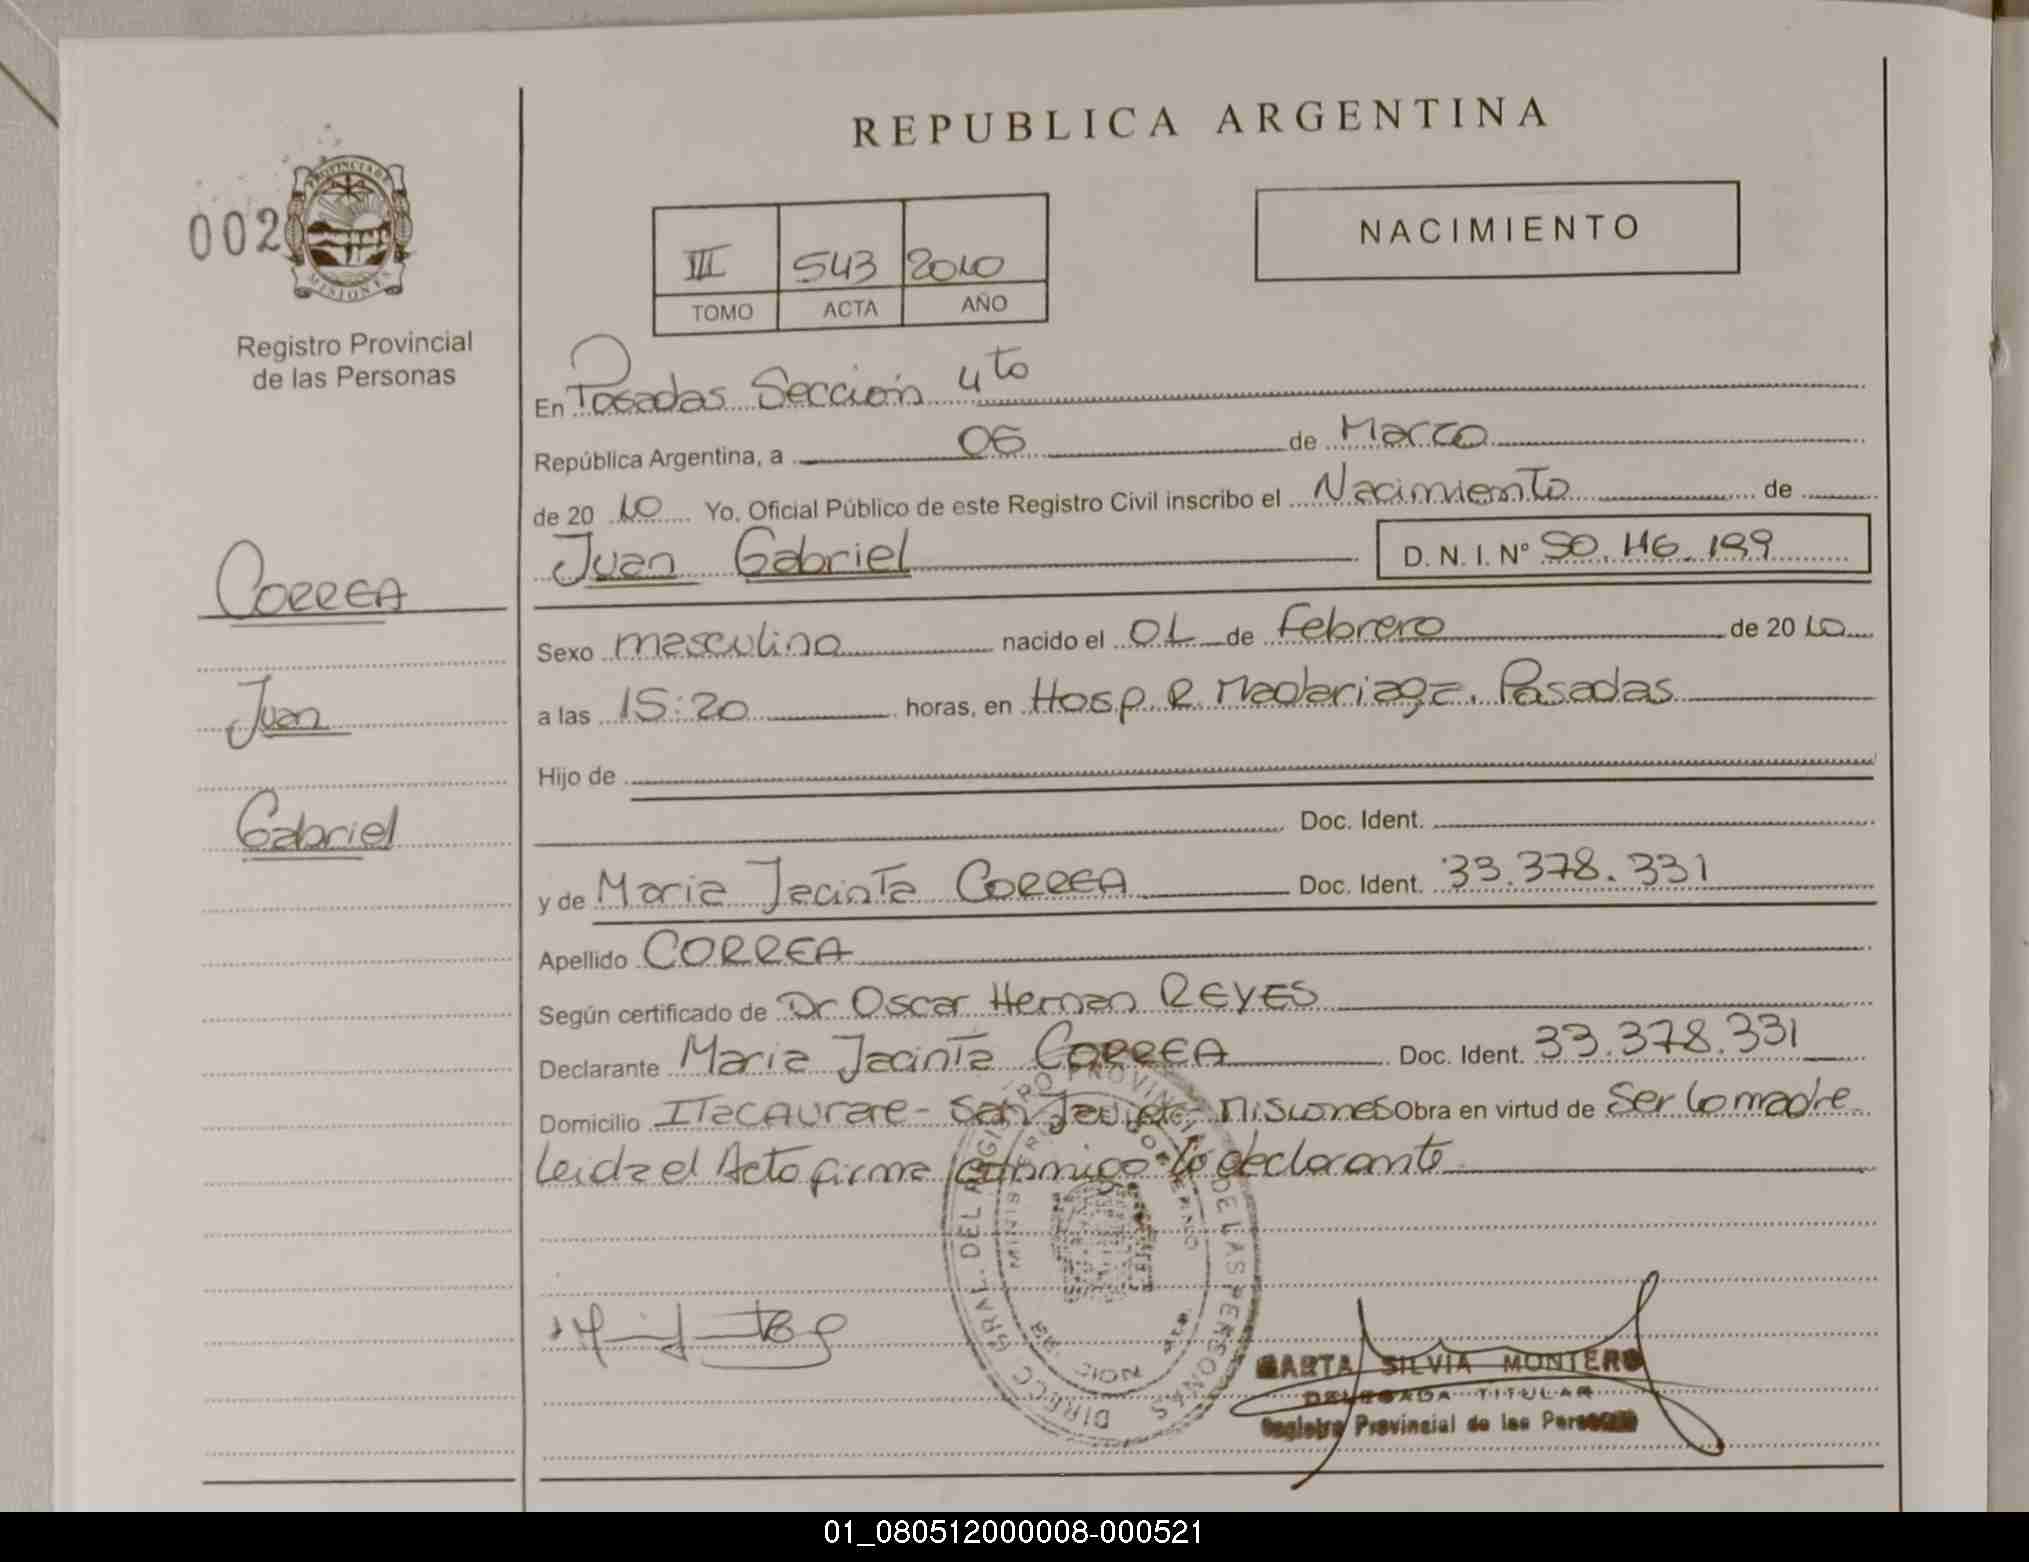 REPUBLICA ARGENTINA
002
PROVINCIA DE
MISIONES
Registro Provincial
de las Personas
III 543 2010
TOMO ACTA AÑO
NACIMIENTO
En Posadas Sección 4to
República Argentina, a 06 de Marzo
de 2010 Yo, Oficial Público de este Registro Civil inscribo el Nacimiento de
Juan Gabriel D. N. I. N° 50.116.199
CORREA
Juan
Gabriel
Sexo masculino nacido el 01 de Febrero de 2010
a las 15:20 horas, en Hosp R. Madariaga. Posadas
Hijo de
Doc. Ident.
y de Maria Jacinta CORREA Doc. Ident. 33.378.331
Apellido CORREA
Según certificado de Dr Oscar Hernan REYES
Declarante Maria Jacinta CORREA Doc. Ident. 33.378.331
Domicilio Itacaurare - San Javier - Misiones Obra en virtud de Ser la madre
Leida el Acta firma conmigo la declarante
DIRECC GRAL. DEL REGISTRO PROVINCIAL DE LAS PERSONAS
MARTA SILVIA MONTERO
DELEGADA TITULAR
Registro Provincial de las Personas
01_080512000008-000521